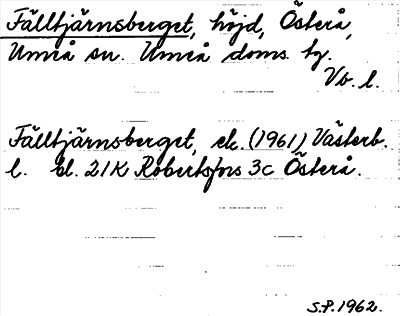 Fälltjärnsberget, höjd, Österå,
Umeå sn. Umeå doms. hg.
Vb. l.
Fälltjärnsberget, ek. (1961) Västerb.
l. bl. 21K Robertsfors 3c Österå.
S.P. 1962.